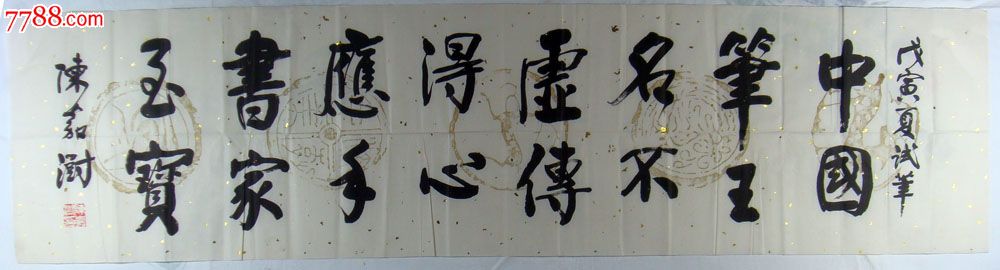 7788.com
戊寅夏试筆
中國
筆王
名不
虛傳
得心
應手
書家
至寶
陳嘉澍